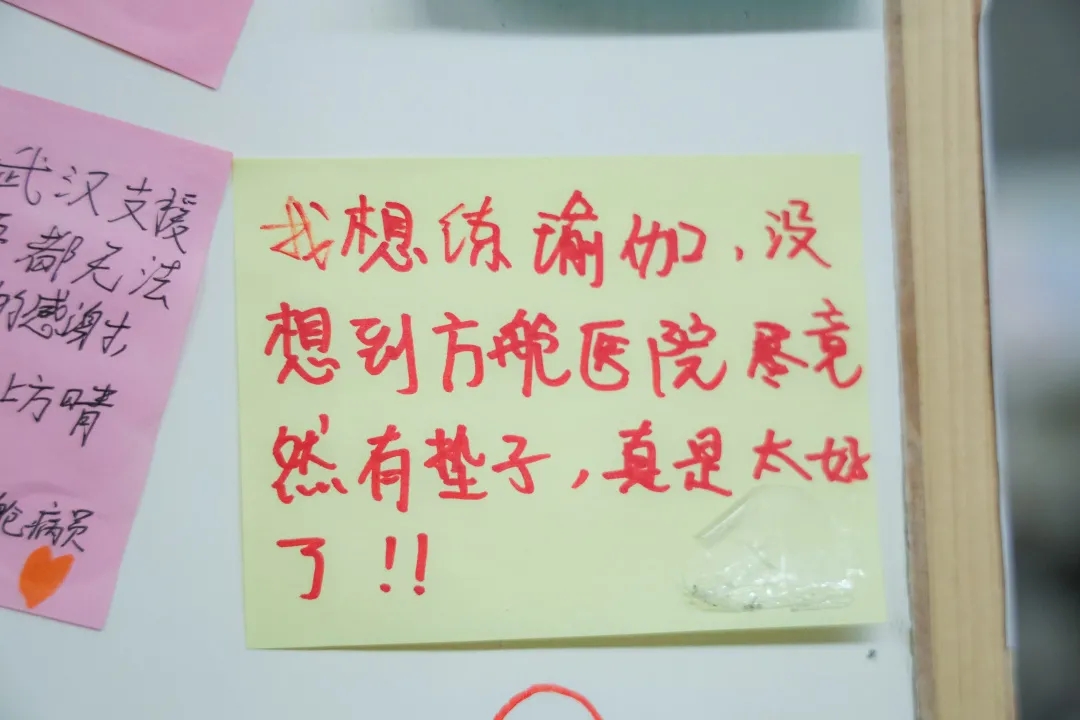 武汉支援
都无法
的感谢,
上方晴
舱病员
我想练瑜伽,没
想到方舱医院尽竟
然有垫子,真是太好
了!!